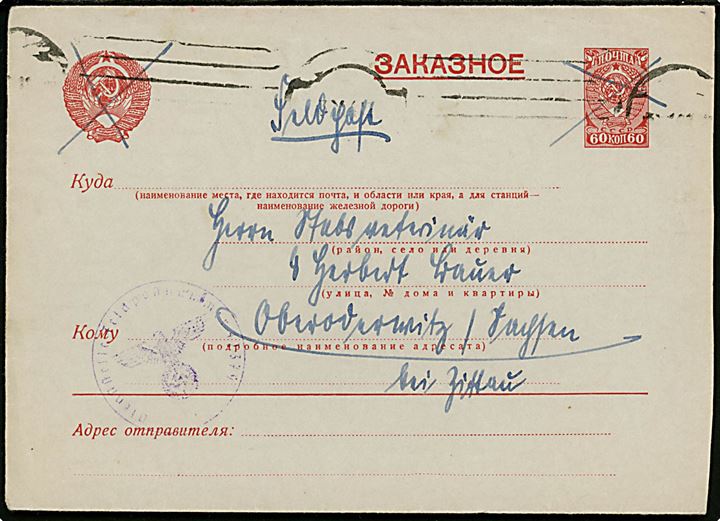 ЗАКАЗНОЕ
ПОЧТА
60 КОП 60
Feldpost
Куда
(наименование места, где находится почта, и области или края, а для станций—
наименование железной дороги)
Herrn Stabsveterinär
(район, село или деревня)
Herbert Bauer
(улица, № дома и квартиры)
Кому
Oberoderwitz / Sachsen
(подробное наименование адресата)
bei Zittau
Адрес отправителя: